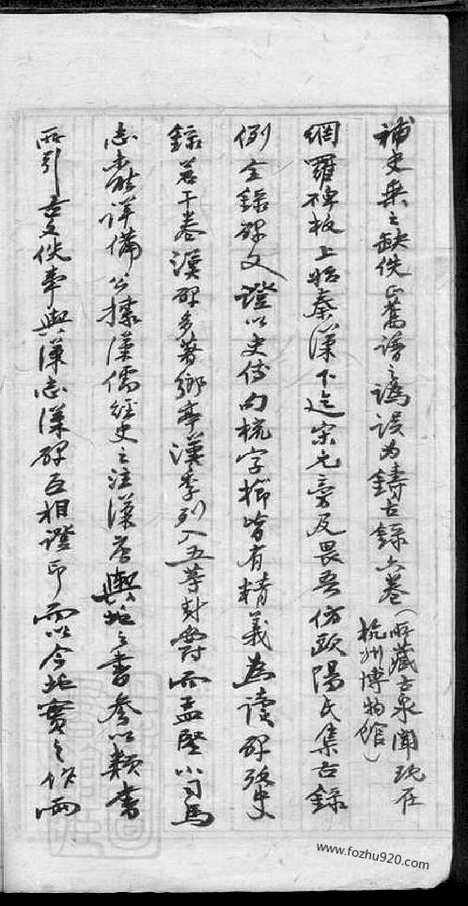 補史乘之缺佚正舊譜之譌误为鑄古錄六卷(所藏古泉聞现在杭州博物館)
網羅碑板上始秦漢下迄宋元旁及畏吾仿歐陽氏集古錄
例全錄碑文證以史傳句梳字櫛皆有精義為讀碑
錄若干卷漢碑多著鄉亭漢季列入五等封爵而孟堅小司馬
志未能詳備公據漢儒經史之注漢晉輿地之書參以類書
所引古文佚事與漢志漢碑互相證印而以今地實之作兩
www.fozhu920.com